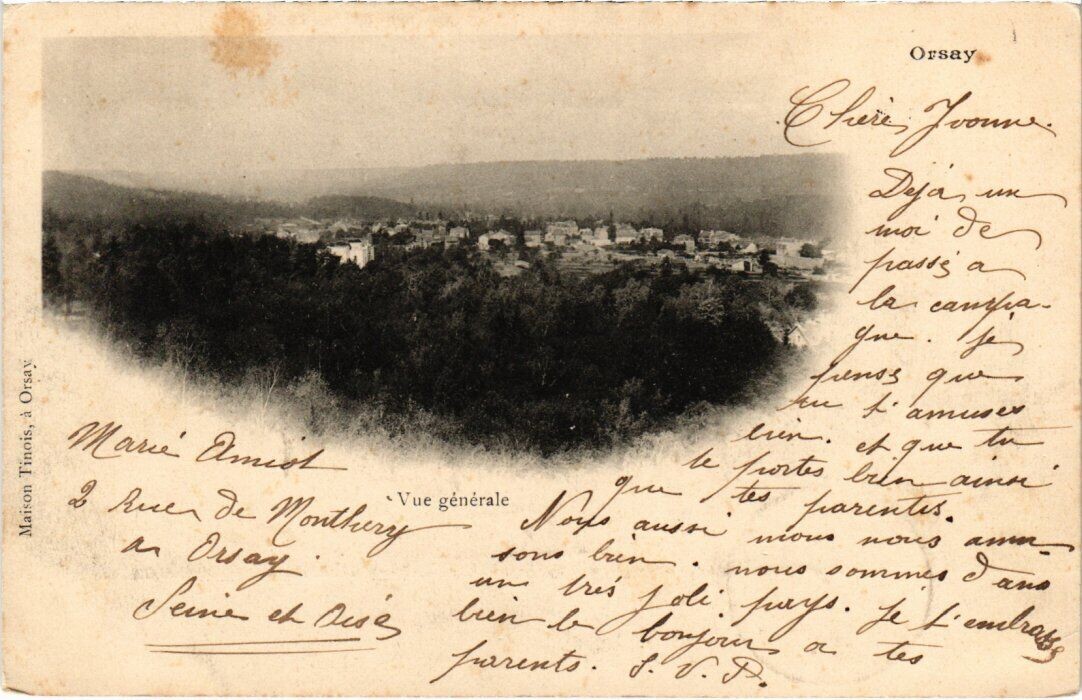 Orsay
Chère Yvonne.
Déjà un
moi de
passé a
la campa-
gne. Je
pense que
tu t'amuses
bien. et que tu
te portes bien ainsi
que tes parents.
Nous aussi nous nous amu-
sons bien. nous sommes dans
un très joli pays. Je t'embrasse
bien le bonjour a tes
parents. S. V. P.
Vue générale
Marie Amiot
2 Rue de Monthery
a Orsay.
Seine et Oise
Maison Tinois, à Orsay